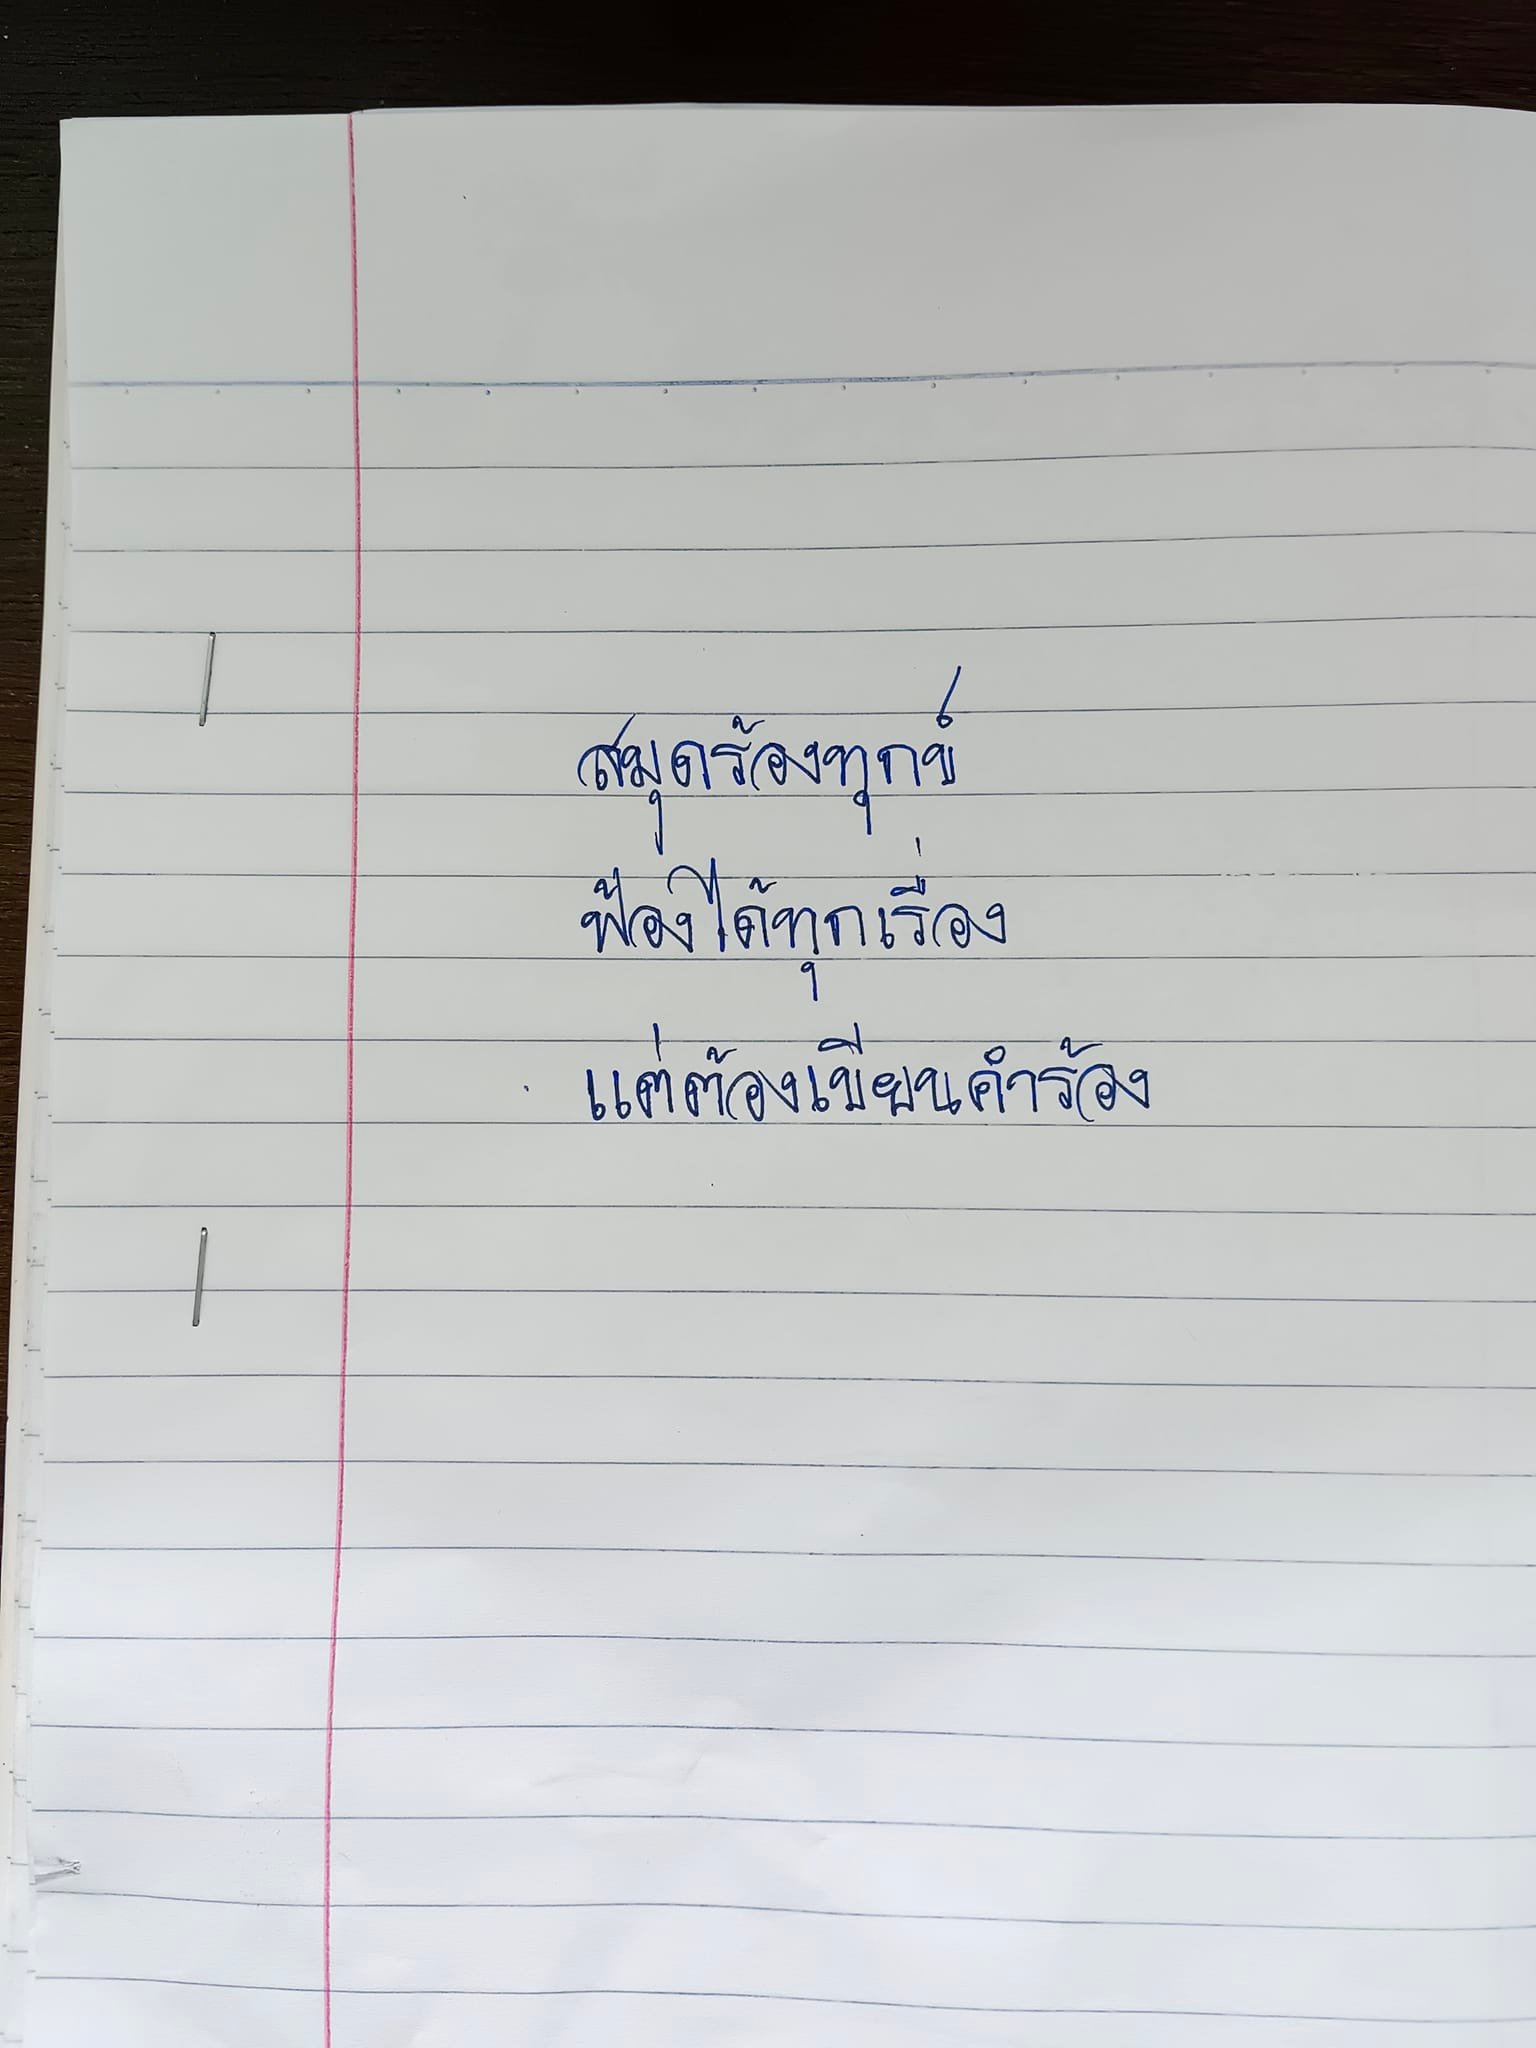 สมุดร้องทุกข์
ฟ้องได้ทุกเรื่อง
แต่ต้องเขียนคำร้อง